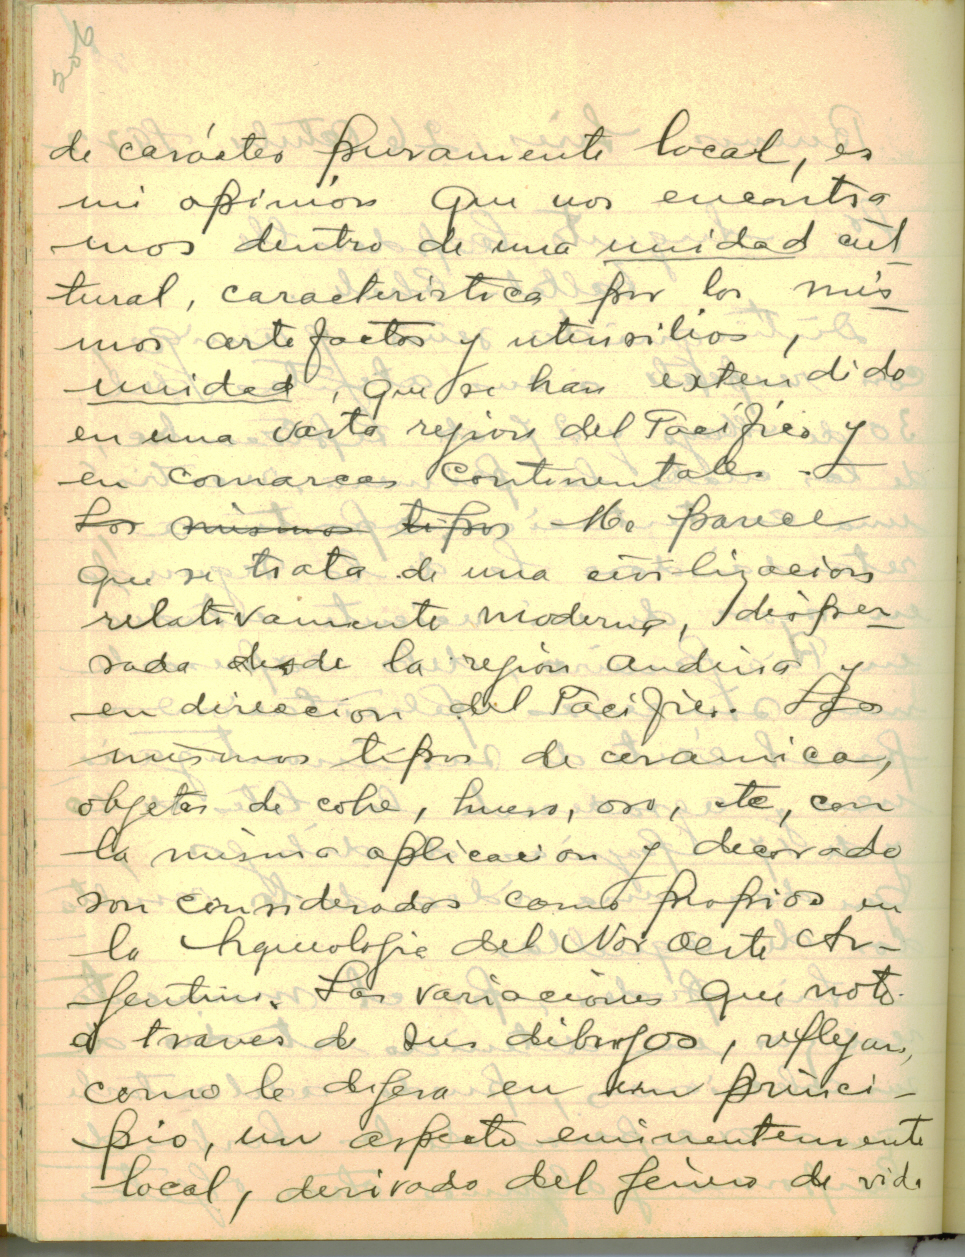 206
de carácter puramente local, es
mi opinión que nos encontra
mos dentro de una unidad cul
tural, caracteristica por los mis
mos artefactos y utensilios,
unidad, que se han extendido
en una vasta region del Pacífico y
en comarcas continentales.-
Los mismos tipos Me parece
que se trata de una civilizacion
relativamente moderna, disper-
sada desde la región andina y
en direccion del Pacífico. Los
mismos tipos de cerámica,
objetos de cobre, hueso, oro, etc, con
la misma aplicacion y decorado
son considerados como propios en
la Arqueologia del Nor Oeste Ar-
gentino. Las variaciones que noto
a traves de sus dibujos, reflejan,
como le dijera en un princi-
pio, un aspecto eminentemente
local, derivado del género de vida